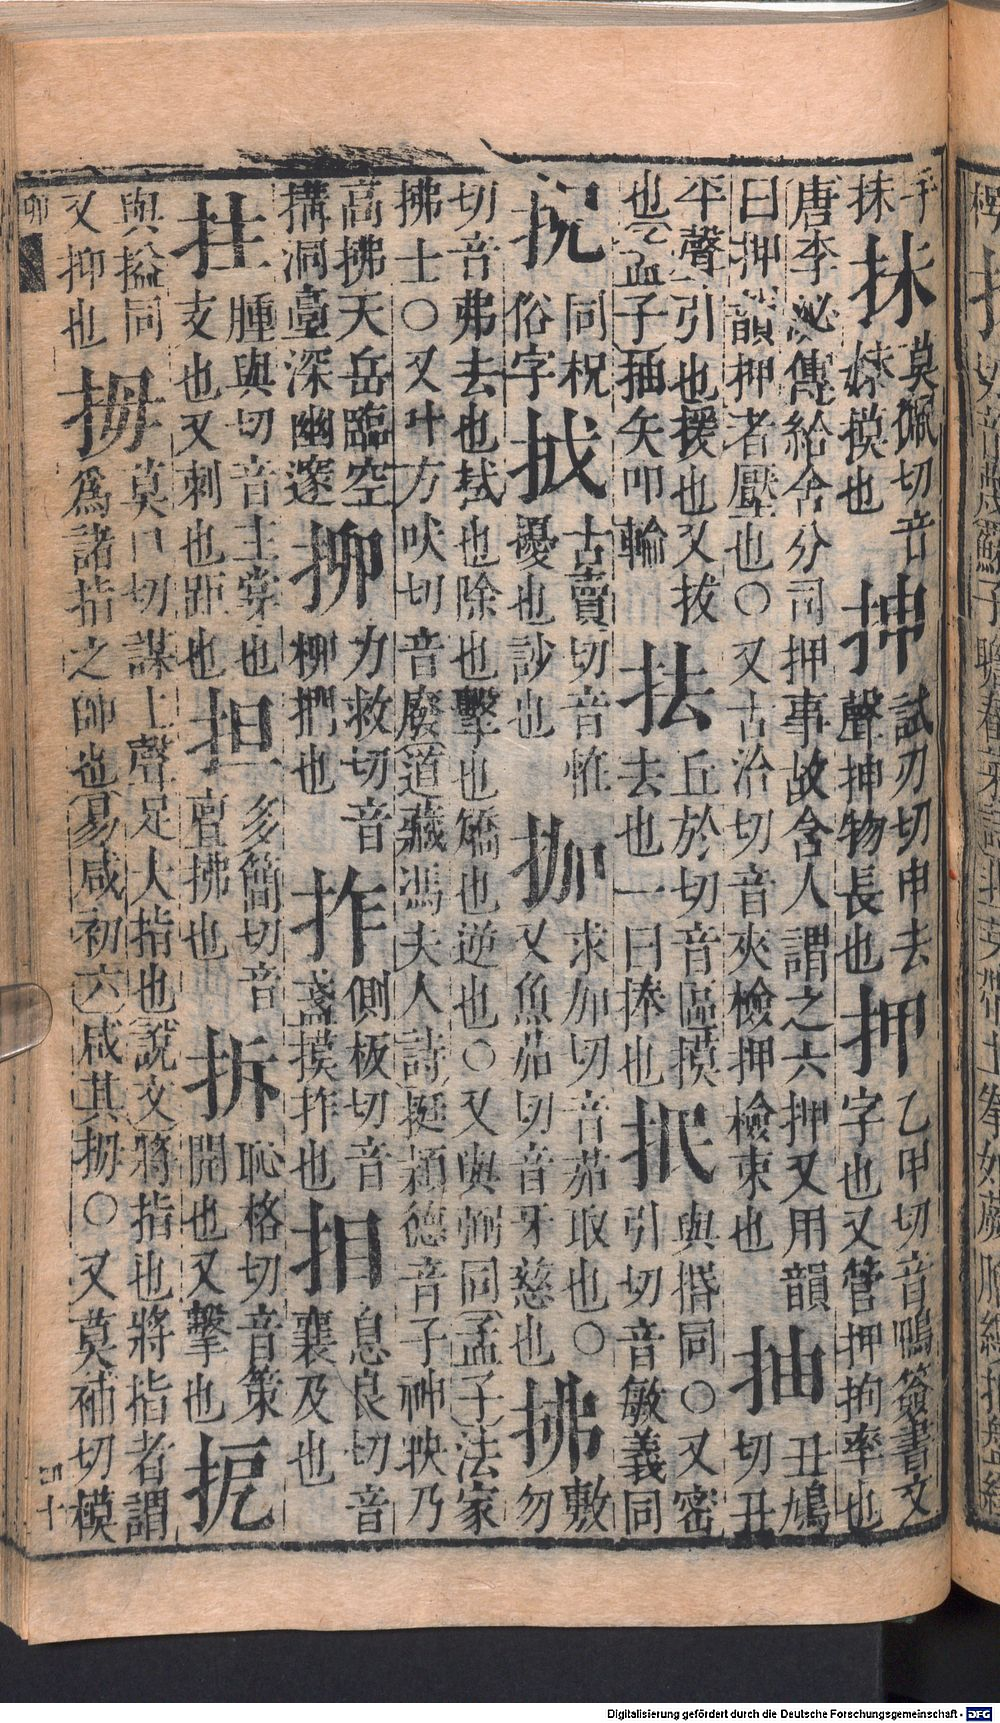 手抹抺莫佩切音妹摸也抻試刃切申去聲抻物長也押乙甲切音鴨簽書文字也又管押拘率也
唐李泌傳給舍分司押事故舍人謂之六押又用韻曰押韻押者壓也○又古洽切音夾檢押檢束也抽丑鳩切丑
平聲引也援也又拔也孟子抽矢叩輪抾丘於切音區摸去也一曰捧也抿與捪同○又密引切音敏義同
同柷俗字古賣切音恠擾也抄也拁求加切音茄取也○又魚茄切音牙慈也拂敷勿
切音弗去也拭也除也擊也矯也逆也○又與弼同孟子法家拂士○又叶方吠切音廢道藏馮夫人詩挺穎德音子神映乃
高拂天岳臨空搆洞臺深幽邃力救切音柳捫也拃側板切音盞摸拃也息良切音襄及也
拄腫與切音主掌也支也又刺也距也担多簡切音亶拂也拆恥格切音策開也又擊也㧖
與搤同又抑也拇莫口切謀上聲足大指也說文將指也將指者謂爲諸指之帥也易咸初六咸其拇○又莫補切模
卯
四十
Digitalisierung gefördert durch die Deutsche Forschungsgemeinschaft - DFG